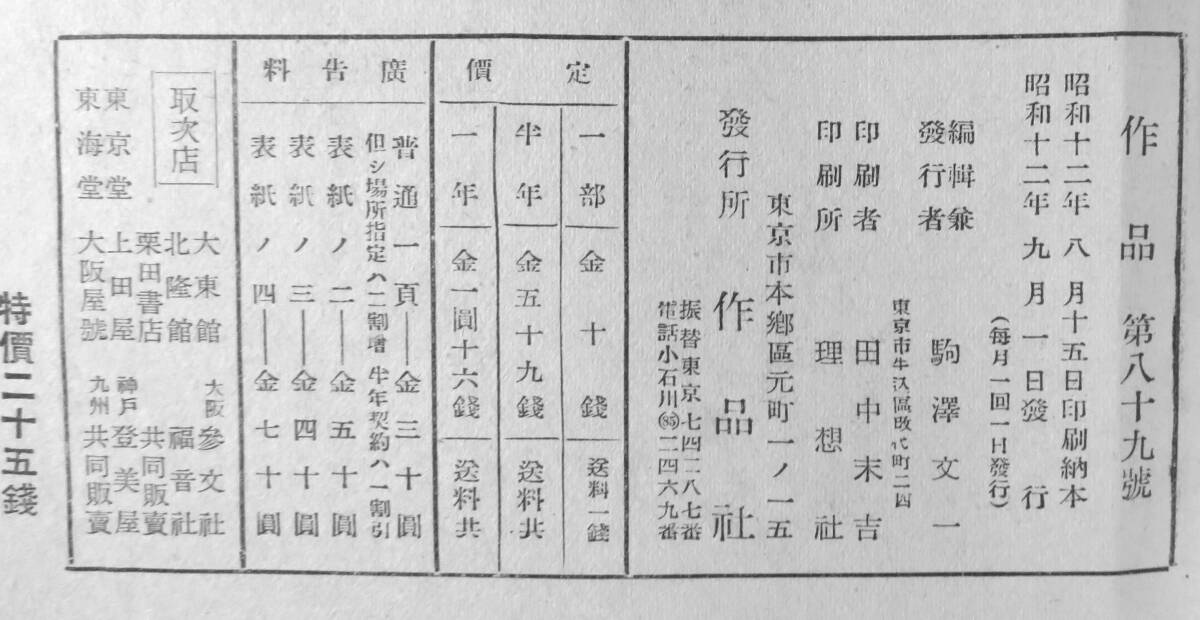 作品 第八十九號
昭和十二年 八 月十五日印刷納本
昭和十二年 九 月 一 日 發 行
(每月一回一日發行)
編輯兼
發行者 駒 澤 文 一
東京市牛込區改代町二四
印刷者 田 中 末 吉
印刷所 理 想 社
東京市本鄕區元町一ノ一五
發行所 作 品 社
振替東京七四二八七番
電話小石川(85)二四六九番
定 價
一 部 金 十 錢 送料一錢
半 年 金五十九錢 送料共
一 年 金一圓十六錢 送料共
廣 告 料
普通一頁――金三十圓
但シ場所指定ハ二割增 半年契約ハ一割引
表紙ノ二――金五十圓
表紙ノ三――金四十圓
表紙ノ四――金七十圓
取次店
大東館 大阪 參文社
北隆館 福音社
栗田書店 共同販賣
東京堂 上田屋 神戶 登美屋
東海堂 大阪屋號 九州 共同販賣
特價二十五錢